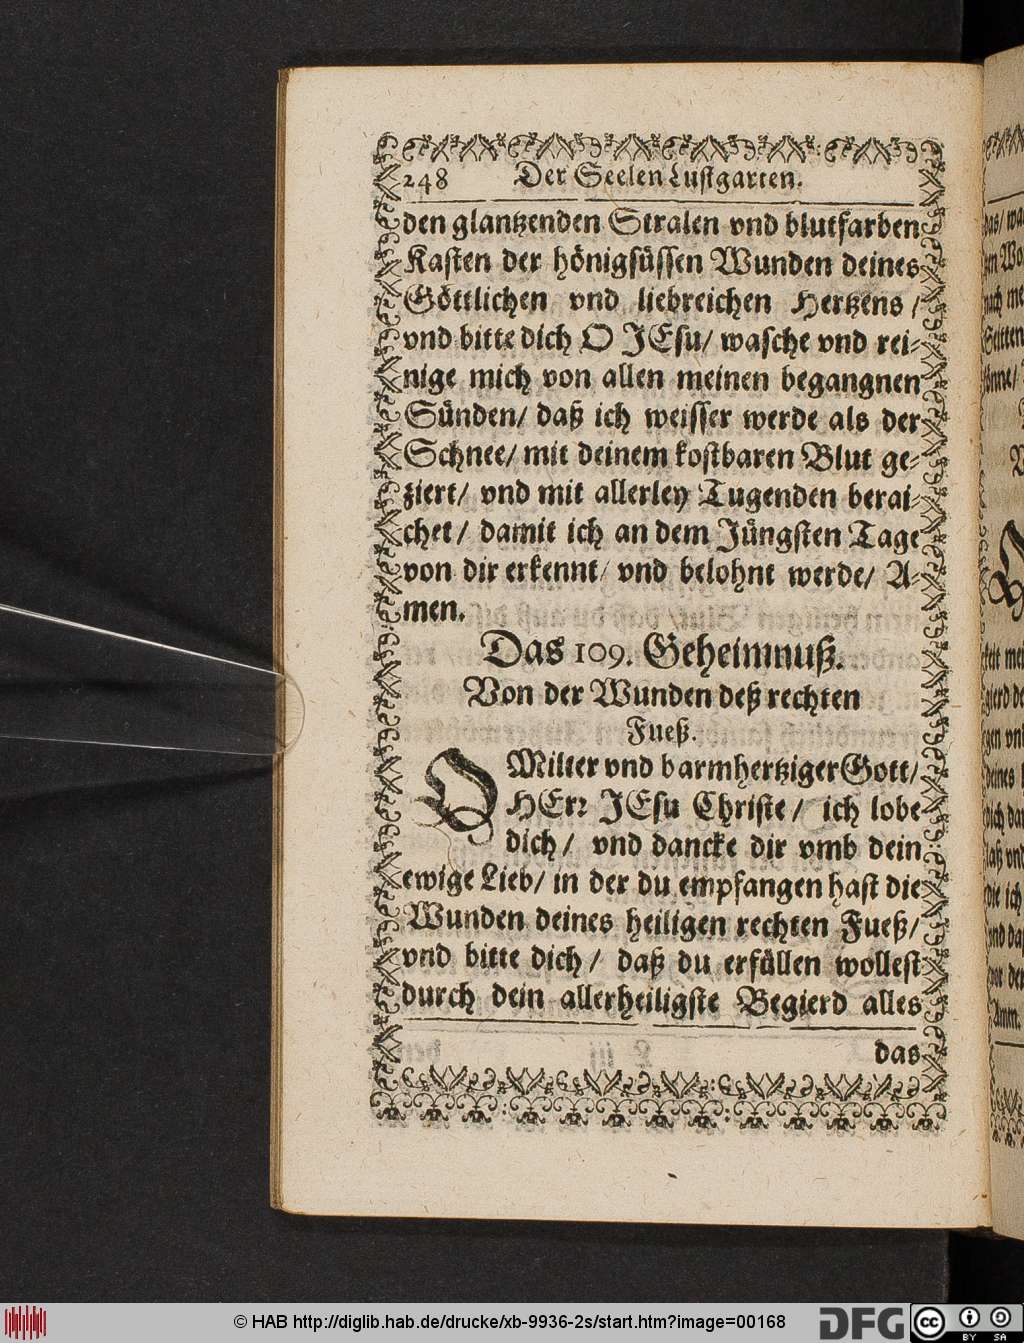 248 Der Seelen Lustgarten.
den glantzenden Stralen vnd blutfarben
Kasten der hönigsüssen Wunden deines
Göttlichen vnd liebreichen Hertzens /
vnd bitte dich O JEsu/ wasche vnd rei-
nige mich von allen meinen begangnen
Sünden/ daß ich weisser werde als der
Schnee/ mit deinem kostbaren Blut ge-
ziert/ vnd mit allerley Tugenden berai-
chet/ damit ich an dem Jüngsten Tage
von dir erkennt/ vnd belohnt werde/ A-
men.
Das 109. Geheimnuß.
Von der Wunden deß rechten
Fueß.
O Milter vnd barmhertziger Gott/
HErr JEsu Christe/ ich lobe
dich/ vnd dancke dir vmb dein
ewige Lieb/ in der du empfangen hast die
Wunden deines heiligen rechten Fueß/
vnd bitte dich/ daß du erfüllen wollest
durch dein allerheiligste Begierd alles
das
© HAB http://diglib.hab.de/drucke/xb-9936-2s/start.htm?image=00168
DFG
cc
BY SA